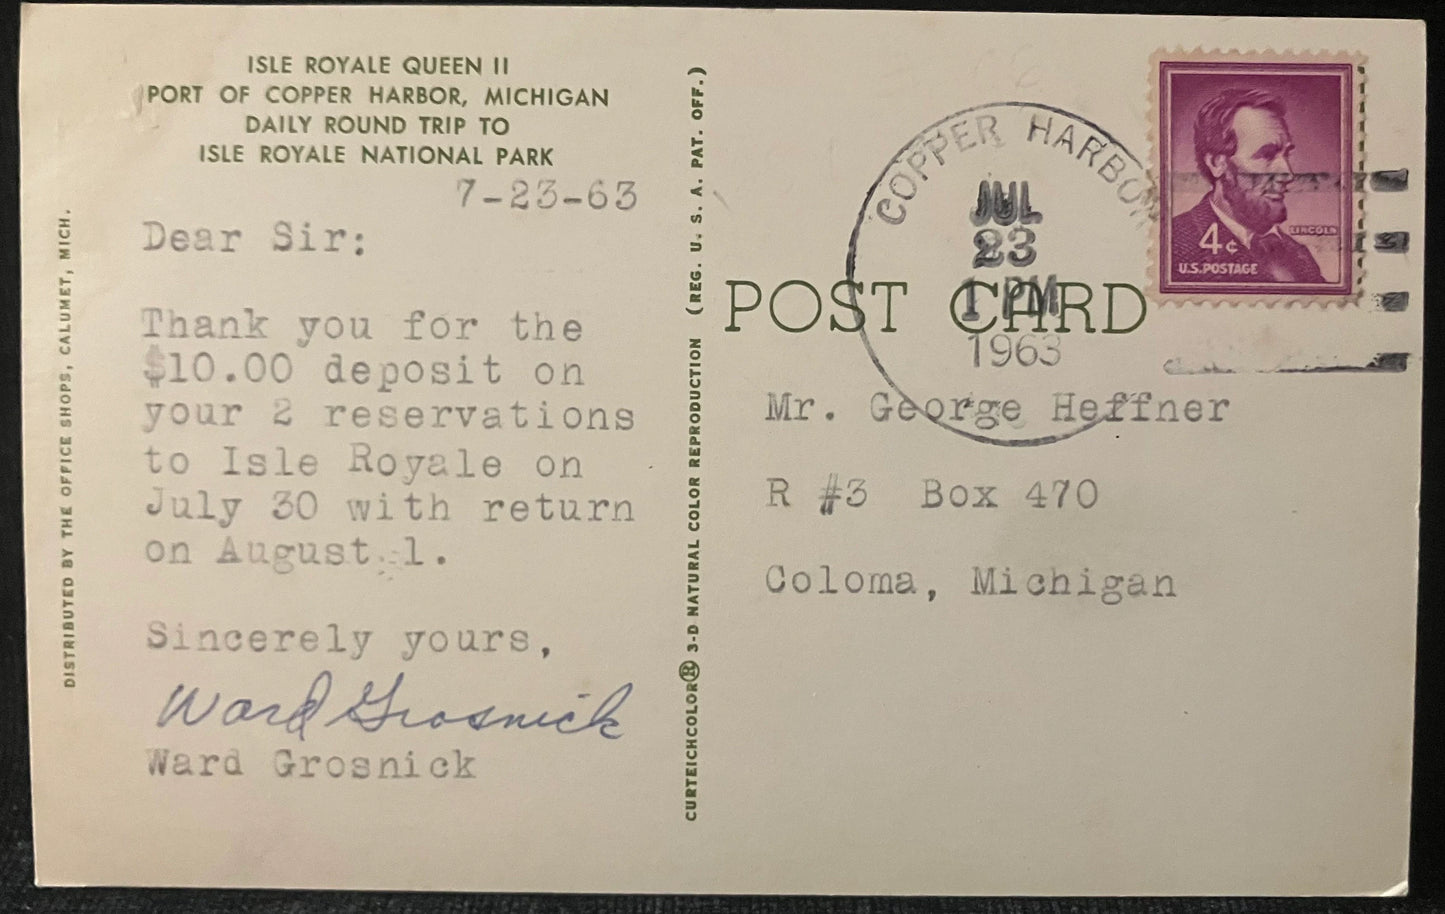 ISLE ROYALE QUEEN II
PORT OF COPPER HARBOR, MICHIGAN
DAILY ROUND TRIP TO
ISLE ROYALE NATIONAL PARK
7-23-63
Dear Sir:
Thank you for the
$10.00 deposit on
your 2 reservations
to Isle Royale on
July 30 with return
on August 1.
Sincerely yours,
Ward Grosnick
Ward Grosnick
DISTRIBUTED BY THE OFFICE SHOPS, CALUMET, MICH.
CURTEICHCOLOR® 3-D NATURAL COLOR REPRODUCTION (REG. U. S. A. PAT. OFF.)
COPPER HARBOR
JUL
23
1 PM
1963
LINCOLN
4¢
U.S. POSTAGE
POST CARD
Mr. George Heffner
R #3 Box 470
Coloma, Michigan